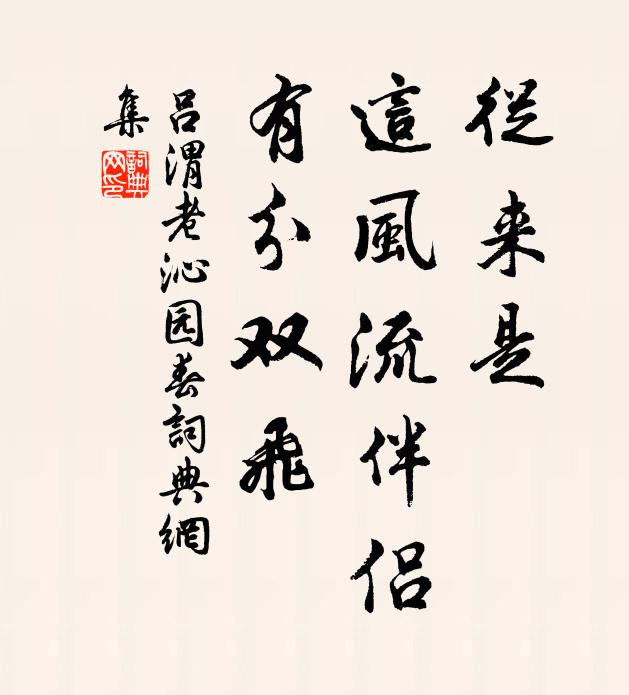 從来是
這風流伴侣
有分双飛
吕渭老沁园春詞典網
集
詞典
网印